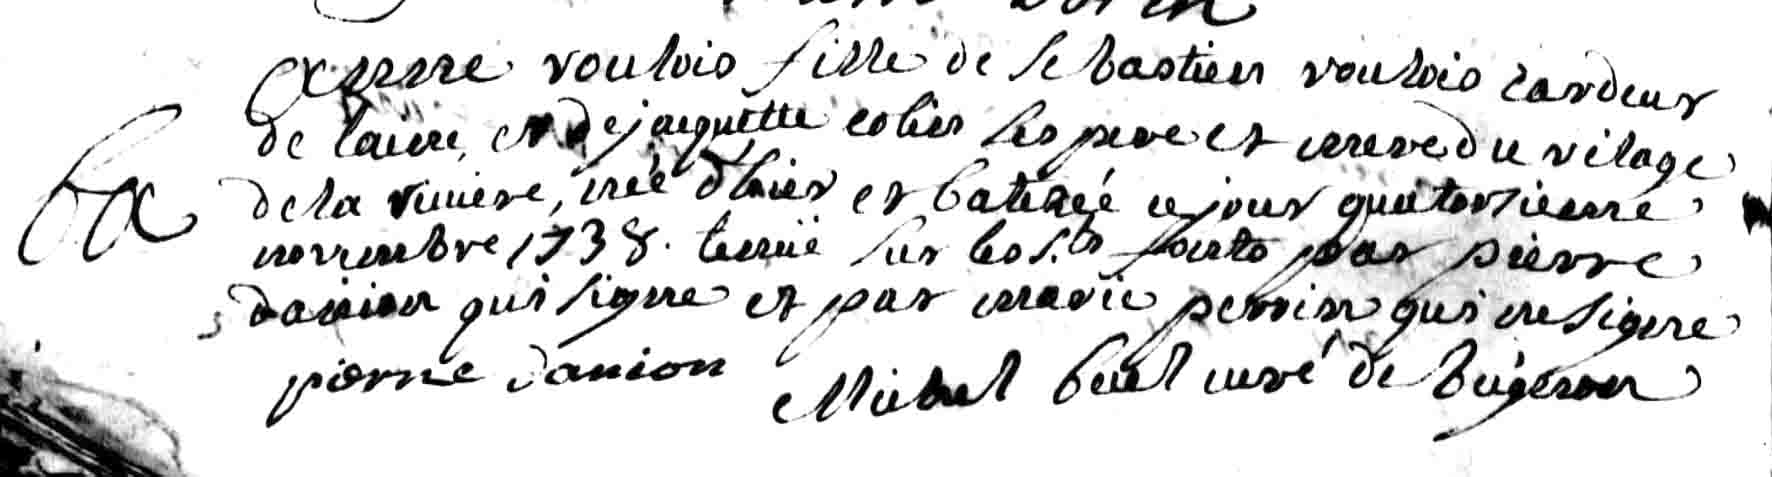 Anne voulois fille de sebastien voulois cardeur
de laine, et de jacquette colier ses pere et mere du vilage
de la riviere, née d'hier et batizéé ce jour quatorzieme
ba
novembre 1738. tenuë sur les s.ts fonts par pierre
danion qui signe et par marie perrin qui ne signe
pierre danion Michel curé de